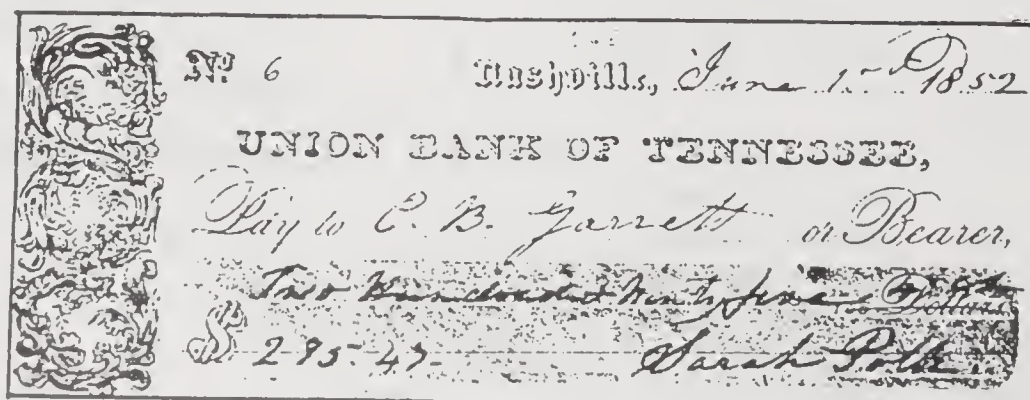 No. 6 Nashville, June 1st 1852
UNION BANK OF TENNESSEE,
Pay to C. B. Garrett or Bearer,
Two Hundred & Ninty five Dollars
$ 295-47 Sarah Polk